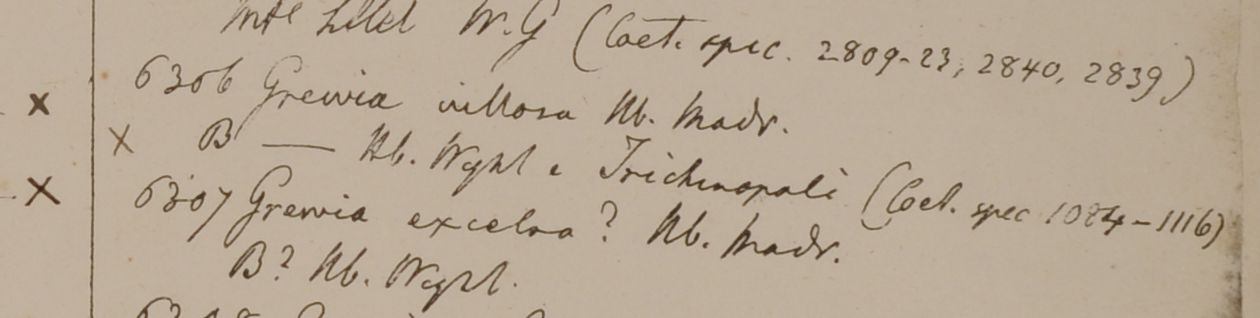 W.G (Cet. spec. 2809-23, 2840, 2839)
× 6306 Grewia villosa Hb. Madr.
× B — Hb. Wght e Trichinopali (Cet. spec 1084-1116)
× 6307 Grewia excelsa? Hb. Madr.
B? Hb. Wght.